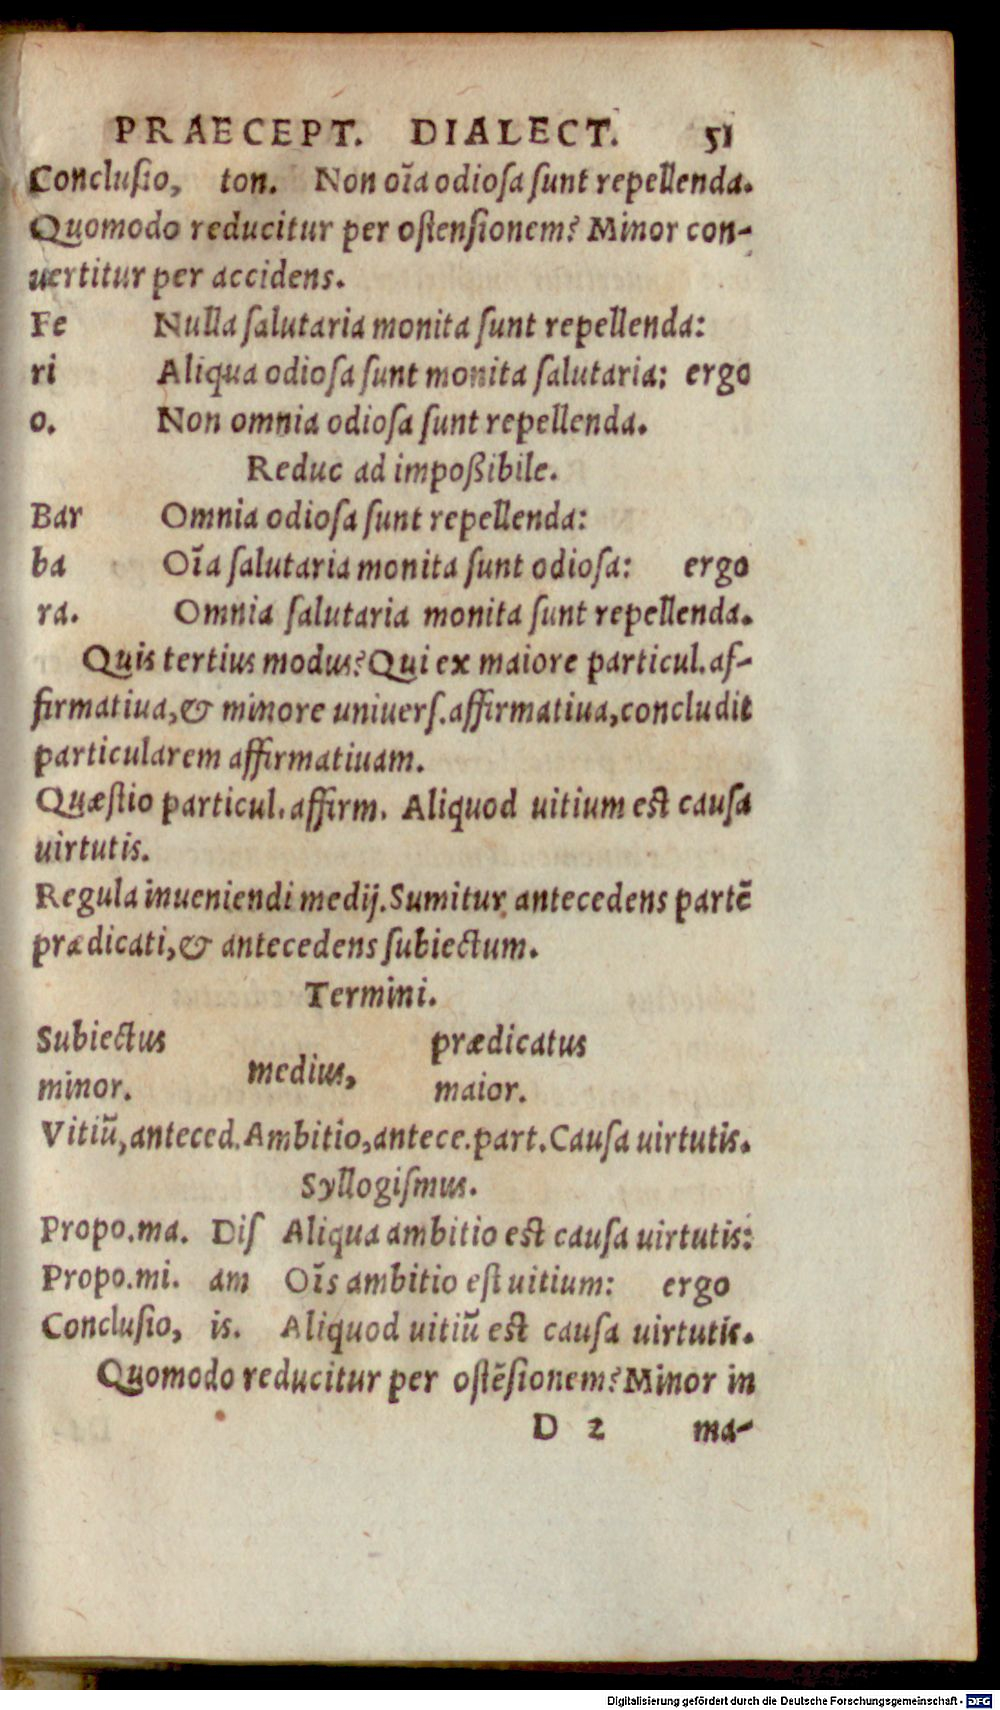 PRAECEPT. DIALECT. 51
Conclusio, ton. Non oĩa odiosa sunt repellenda.
Quomodo reducitur per ostensionem? Minor con-
uertitur per accidens.
Fe Nulla salutaria monita sunt repellenda:
ri Aliqua odiosa sunt monita salutaria: ergo
o. Non omnia odiosa sunt repellenda.
Reduc ad impoßibile.
Bar Omnia odiosa sunt repellenda:
ba Oĩa salutaria monita sunt odiosa: ergo
ra. Omnia salutaria monita sunt repellenda.
Quis tertius modus? Qui ex maiore particul. af-
firmatiua, & minore uniuers. affirmatiua, concludit
particularem affirmatiuam.
Quæstio particul. affirm. Aliquod uitium est causa
uirtutis.
Regula inueniendi medij. Sumitur antecedens partẽ
prædicati, & antecedens subiectum.
Termini.
Subiectus prædicatus
medius,
minor. maior.
Vitiũ, anteced. Ambitio, antece. part. Causa uirtutis.
Syllogismus.
Propo. ma. Dis Aliqua ambitio est causa uirtutis:
Propo. mi. am Oĩs ambitio est uitium: ergo
Conclusio, is. Aliquod uitiũ est causa uirtutis.
Quomodo reducitur per ostẽsionem? Minor in
D 2 ma-
Digitalisierung gefördert durch die Deutsche Forschungsgemeinschaft - DFG